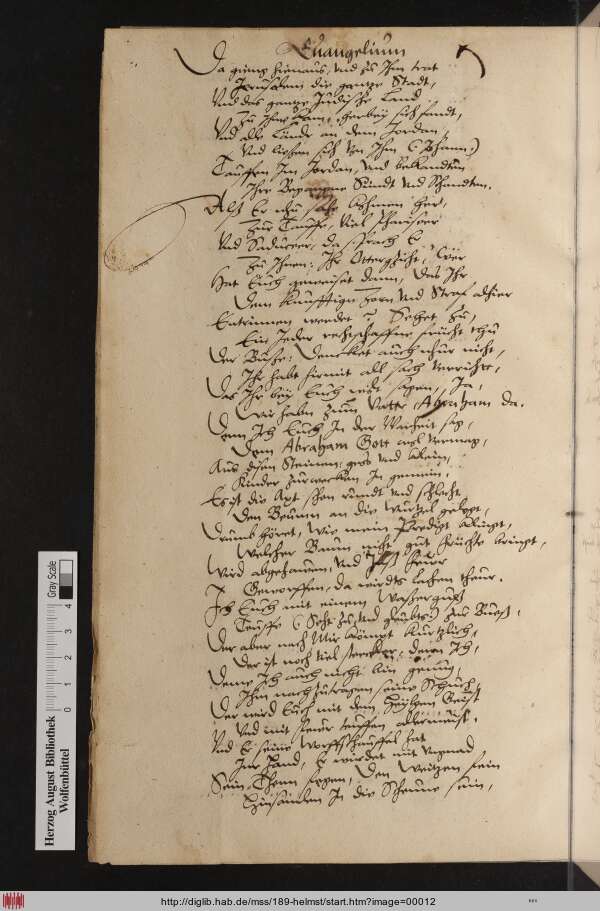 Euangelium
Da gieng hienaus, vnd zu Ihm trat
Jerusalem die gantze Stadt,
Vnd das gantze Judische Land
Zu Ihm kam, herbey sich fandt,
Vnd alle Lände an dem Jordan,
Vnd liesen sich von Ihm (Johann)
Tauffen Im Jordan, vnd bekandten
Ihre Begangene Sündt vnd Schandten.
Als Er nhu sahe kohmen her,
Zur Tauffe, viel Phariseer
Vnd Saduceer, da sprach Er
Zu Ihnen: Ihr Otterzücht, Wer
Hat Euch geweiset dann, das Ihr
Dem künfftigen Zorn vnd Straf alhier
Entrinnen werdet? Sehet zu,
Ein Jeder rechtschaffne frücht thu
Der Buße: Dencket auch nhur nicht,
Ihr habt hiemit all sach verricht,
Das Ihr bey Euch wolt sagen, Ja,
Wir habn zum Vatter Abraham da.
Denn Ich Euch In der Warheit sag,
Dem Abraham Gott wol vermag,
Aus disen Steinen, gros vnd klein,
Kinder zurwecken In gemein.
Es ist die Axt schon rundt vnd schlecht
Den Beumen an die wurtzel gelegt,
Drumb höret, Wie mein Predigt klingt,
Welcher Baum nicht gut früchte bringt,
Wird abgehauen, vnd Ins feuer
Geworffen, da wirdts lachen theur.
Ich Euch mit einem Waßerguß
Teuffe (Seht zu, vnd gleubts) zur Bueß,
Der aber nach Mir kömpt kürtzlich,
Der ist noch viel stercker, denn Ich,
Deme Ich auch nicht bin genug,
Ihm nach zutragen seine Schuch,
Der wird Euch mit dem Heyligen Geist
Vnd mit feuer teuffen allermeist.
Vnd Er seine Worffschauffel hat
Inn Hand, Er wirdet mit
Sein Thenn fegen, Den Weitzen sein
Einsamlen In die Scheune fein,
Herzog August Bibliothek
Wolfenbüttel
0 1 2 3 4
Gray Scale
http://diglib.hab.de/mss/189-helmst/start.htm?image=00012